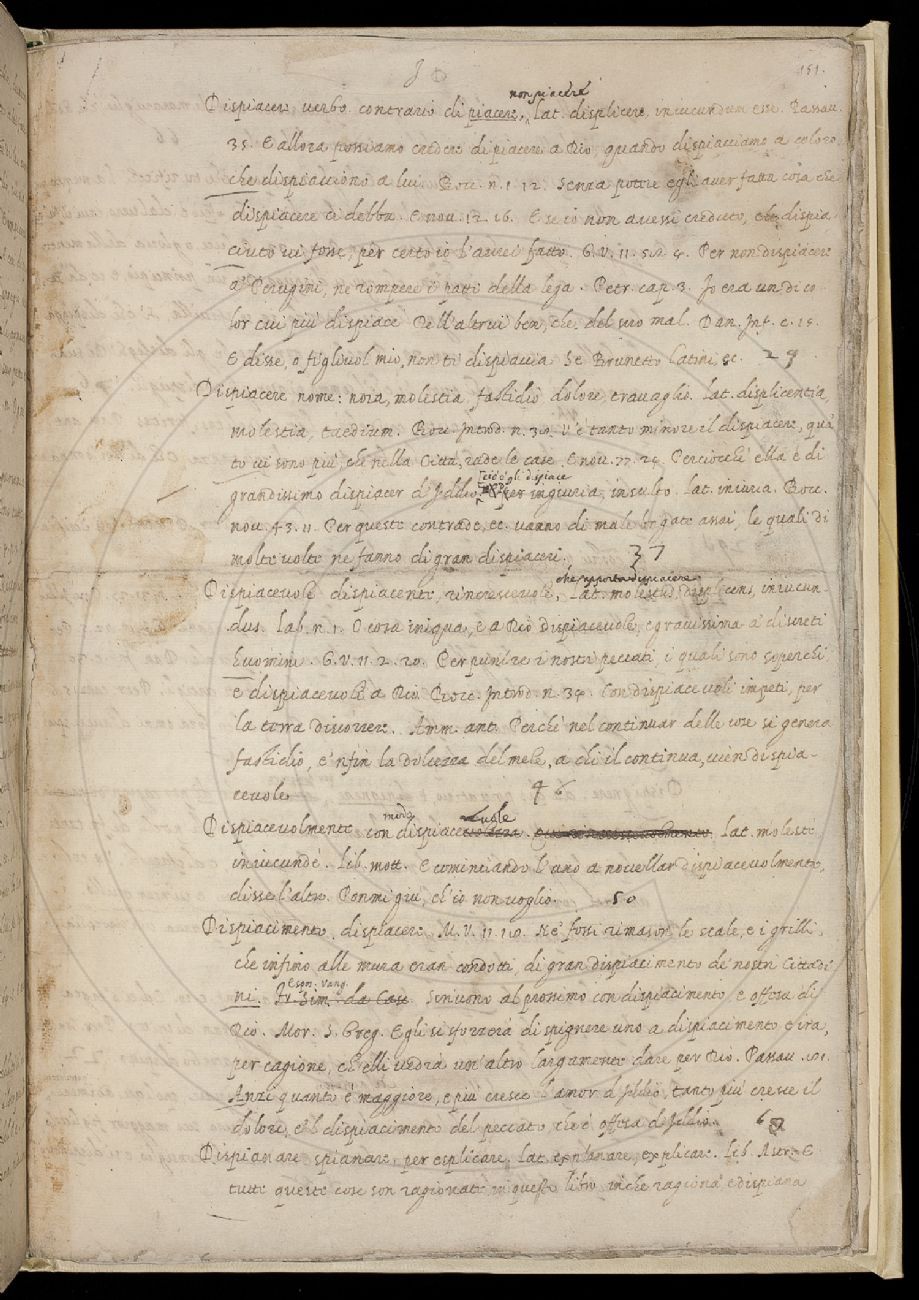 151.
non piacere
Dispiacere, verbo contrario di piacere, Lat. displicere, iniucundum esse. Passau.
35. E allora possiamo credere di piacere a Dio, quando dispiacciamo a coloro
che dispiacciono a lui. Bocc. n. 1. 12. Senza potere egli aver fatta cosa che
dispiacere ti debba. E nou. 12. 16. E se io non avessi creduto, che dispia
ciuto vi fosse, per certo io l'avrei fatto. G. V. 11. 52. 4. Per non dispiacere
a' Perugini, ne rompere i patti della lega. Petr. cap. 3. Io era un di co
lor cui più dispiace Dell'altrui ben, che del suo mal. Dan. Inf. c. 15.
E disse, o figliuol mio, non ti dispiaccia Se Brunetto Latini, &c. 29
Dispiacere nome: noia, molestia, fastidio dolore, travaglio. Lat. displicentia,
molestia, taedium. Bocc. Introd. n. 30. V'è tanto minore il dispiacere, quā
to vi sono più, che nella Città, rade le case. E nou. 77. 24. Perciocchè ella è di
ciò ò gli dispiace
grandissimo dispiacer d'Iddio. per ingiuria, insulto. lat. iniuria. Bocc.
nou. 43. 11. Per queste contrade, ec. vanno di male brigate assai, le quali di
molte volte ne fanno di gran dispiaceri. 37
che apporta dispiacere
Dispiacevole dispiacente, rincrescevole, Lat. molestus, displicens, iniucun-
dus. Lab. n. 1. O cosa iniqua, e a Dio dispiacevole, e gravissima a' discreti
huomini. G. V. 11. 2. 20. Per punire i nostri peccati, i quali sono soperchi,
e dispiacevoli a Dio. Bocc. Introd. n. 34. Con dispiacevoli impeti, per
la terra discorrere. Amm. ant. Perchè nel continuar delle cose si genera
fastidio, e 'nfin la dolcezza del mele, a chi il continua, vien dispia-
cevole 46
modo uole
Dispiacevolmente con dispiacevolezza. Lat. moleste
iniucundè. Lib. mott. E cominciando l'uno a novellar dispiacevolmente,
disse l'altro. Ponmi giù, ch'io non voglio. 50
Dispiacimento, dispiacere. M. V. 11. 10. Nè fossi rimason le scale, e i grilli,
che infino alle mura eran condotti, di gran dispiacimento de' nostri Cittadi
Espos. Vang.
ni. Fr. Sim. da Casc. Scrivono al prossimo con dispiacimento e offesa di
Dio. Mor. S. Greg. Egli si sforzerà di spignere uno a dispiacimento e ira,
per cagione, ch'elli vedrà un' altro largamente dare per Dio. Passau. 101.
Anzi quanto è maggiore, e più cresce l'amor d'Iddio, tanto più cresce il
dolore, e 'l dispiacimento del peccato, che è offesa d'Iddio. 60
Dispianare spianare, per esplicare. Lat. explanare, explicare. Lib. Astr. E
tutte queste cose son ragionate in questo libro, inche ragiona e dispiana